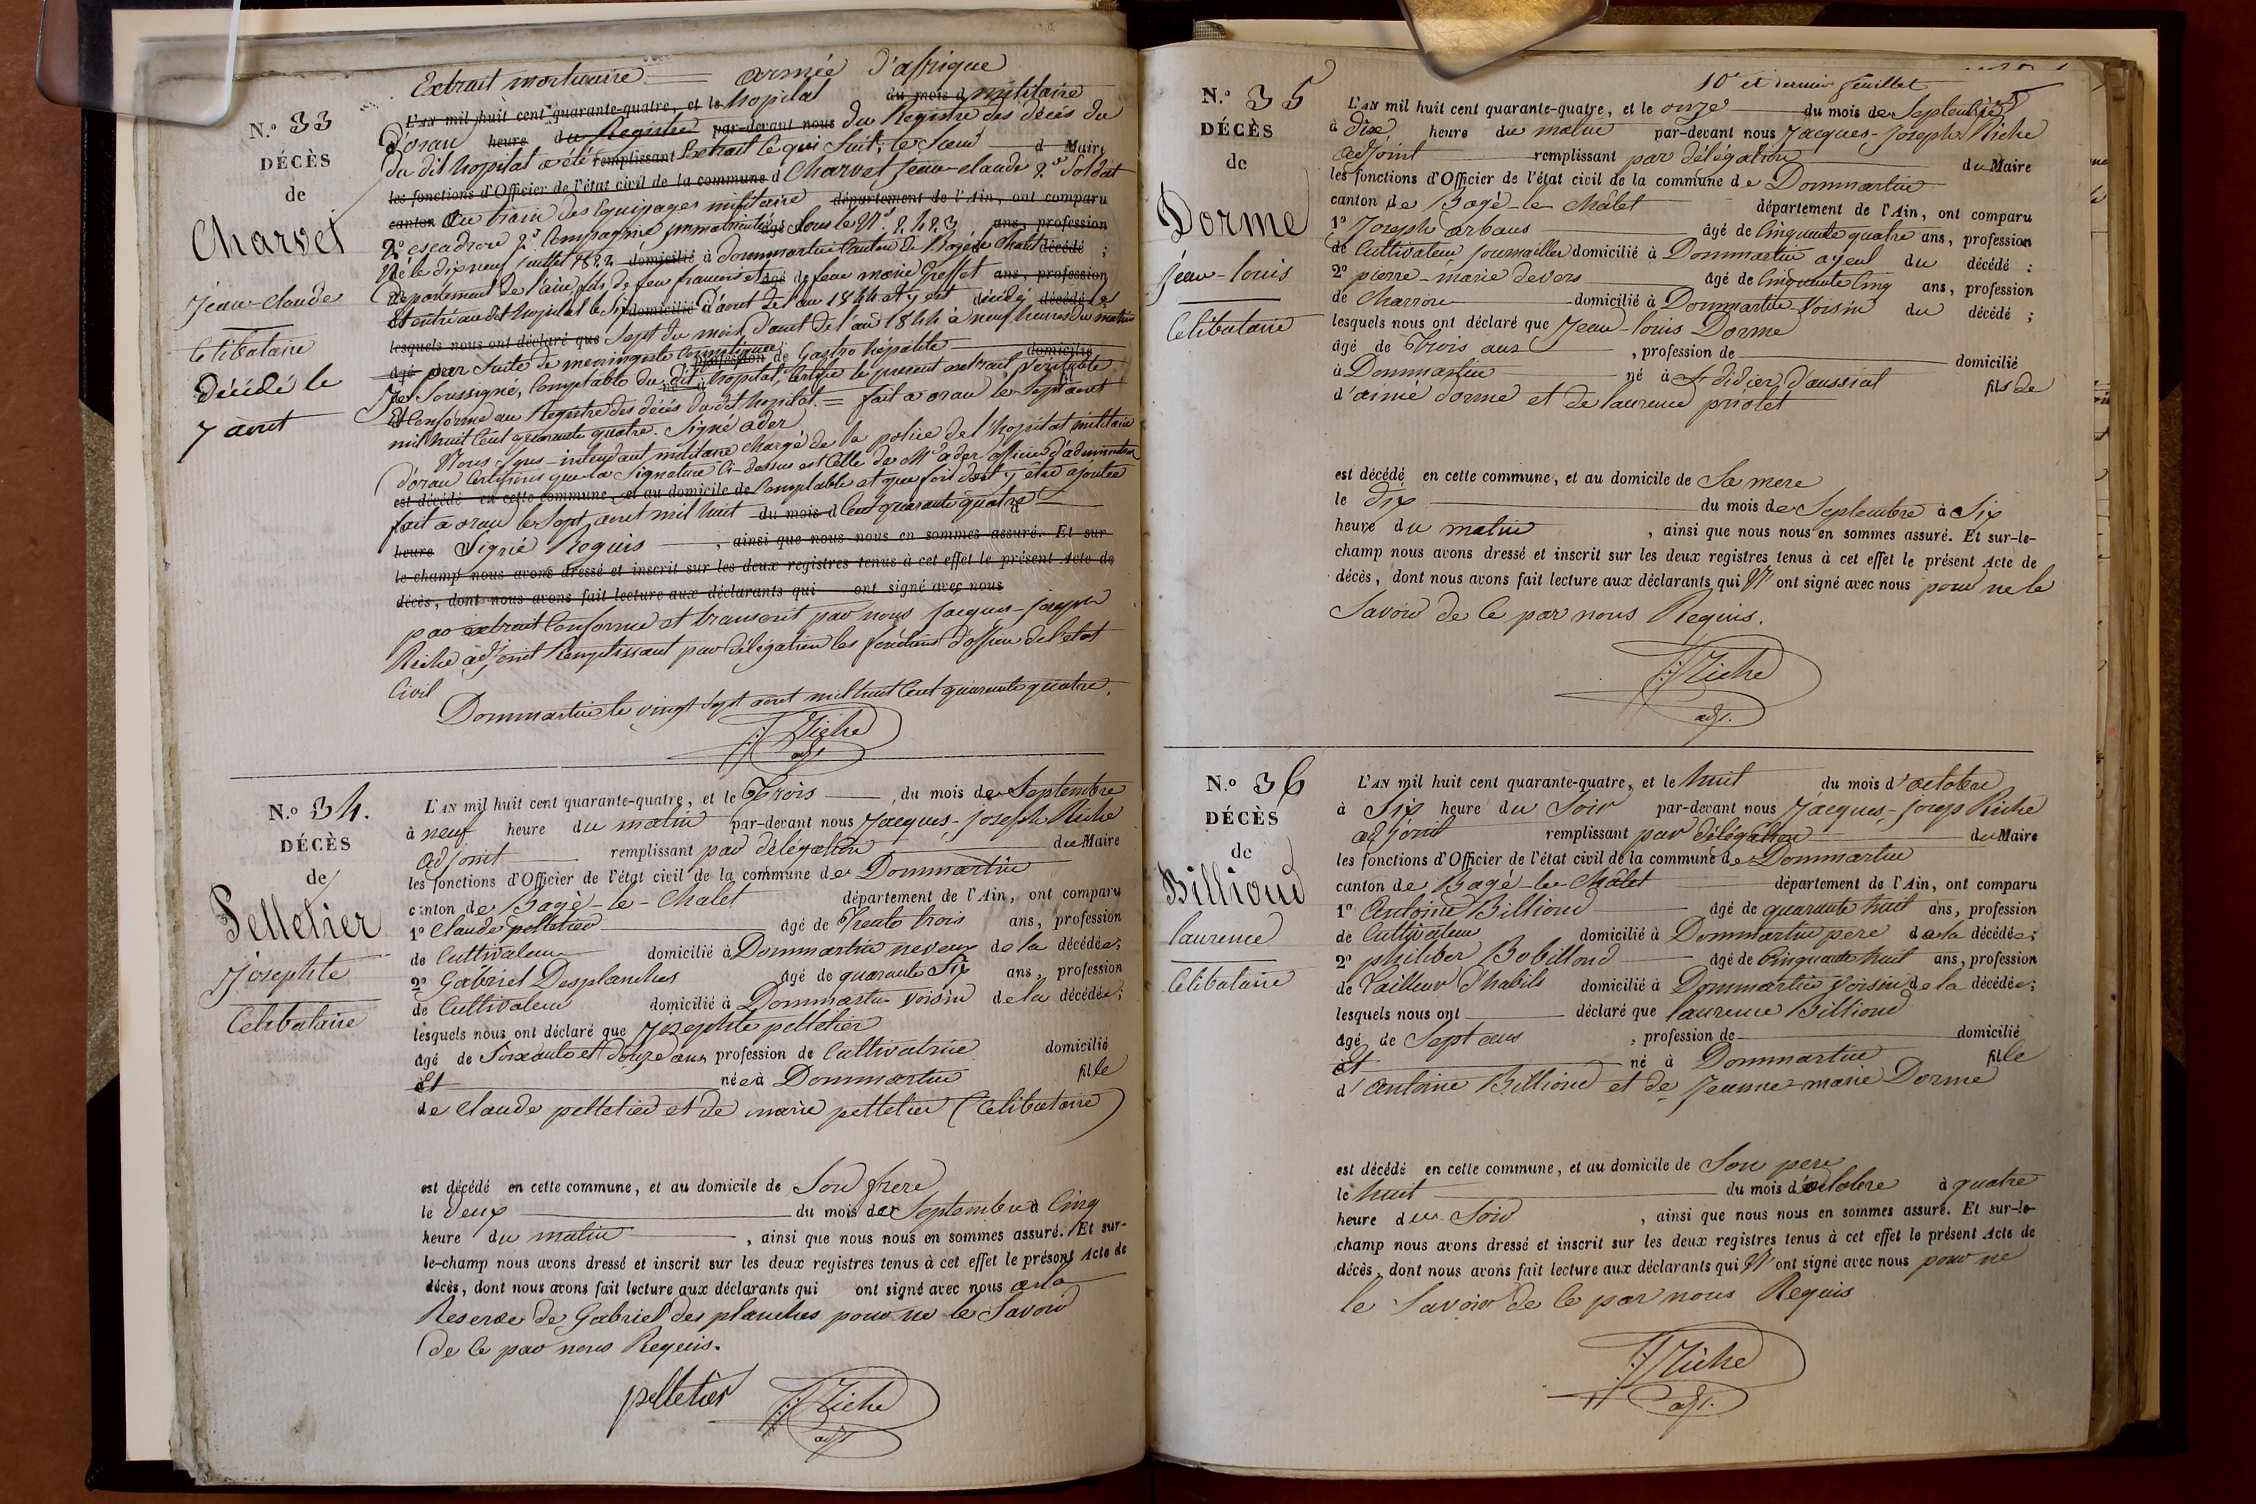 Extrait mortuaire — armée d'affrique
N.° 33
DÉCÈS
de
Charvet
Jean-Claude
Célibataire
décédé le
7 aout
L'AN mil huit cent quarante-quatre, et le hopital du mois d militaire
d'oran heure du Registre par-devant nous du Registre des décès du
du dit hopital a été remplissant Extrait le qui suit; le Sieur d Maire
les fonctions d'Officier de l'état civil de la commune d Charvet Jean-claude 2e Soldat
canton au train des Equipages militaire département de l'Ain, ont comparu
2e escadron 2e Compagnie immatriculé agé sous le N° 2423 ans, profession
Né le dix neuf juillet 1822 domicilié à dommartin Canton de Bagé le Chatel décédé ;
département de l'ain fils de feu francois et agé de feue marie Greffet ans, profession
Est entré au dit hopital le Six domicilié à d'aout de l'an 1844 et y est décédé décédé le
lesquels nous ont déclaré que Sept du mois d'aout de l'an 1844 à neuf heures du matin
agé par Suite de meningite profession de Gastro hépatite domicilié
Je Soussigné, Comptable du dit hopital, Certifie le present extrait Veritable
Et Conforme au Registre des décès du dit hopital. = fait a oran le Sept aout
mil huit Cent quarante quatre. Signé ader
Nous Sous-intendant militaire Chargé de la police de l'hopital militaire
d'oran Certifions que la Signature Ci-dessus est Celle de Mr ader officier d'administration
est décédé en cette commune, et au domicile de Comptable et que foi doit y être ajoutée
fait a oran le Sept aout mil huit du mois d Cent quarante quatre
heure Signé Requis , ainsi que nous nous en sommes assuré. Et sur
le champ nous avons dressé et inscrit sur les deux registres tenus à cet effet le présent Acte de
décès, dont nous avons fait lecture aux déclarants qui ont signé avec nous
par extrait Conforme et transcrit par nous Jacques-Joseph
Riche adjoint Remplissant par délégation les fonctions d'officier de l'etat
Civil
Dommartin le vingt Sept aout mil huit Cent quarante quatre.
J:J Riche
adj.
N.° 34.
DÉCÈS
de
Pelletier
Josephte
Celibataire
L'AN mil huit cent quarante-quatre, et le Trois , du mois de Septembre
à neuf heure du matin par-devant nous Jacques-Joseph Riche
adjoint remplissant par délégation du Maire
les fonctions d'Officier de l'état civil de la commune de Dommartin
canton de Bagé-le-Chalet département de l'Ain, ont comparu
1° Claude pelletier agé de Trente trois ans, profession
de Cultivateur domicilié à Dommartin neveux de la décédée;
2° Gabriel Desplanches agé de quarante Six ans, profession
de Cultivateur domicilié à Dommartin voisin de la décédée;
lesquels nous ont déclaré que Josephte pelletier
agé de Soixante et douze ans profession de Cultivatrice domicilié
à Et née à Dommartin fille
de Claude pelletier et de marie pelletier (Celibataire)
est décédé en cette commune, et au domicile de Son frere
le deux du mois de Septembre à Cinq
heure du matin , ainsi que nous nous en sommes assuré. Et sur-
le-champ nous avons dressé et inscrit sur les deux registres tenus à cet effet le présent Acte de
décès, dont nous avons fait lecture aux déclarants qui ont signé avec nous a la
Reserve de Gabriel des planches pour ne le Savoir
de Ce par nous Requis.
pelletier J:J Riche
adj.
10e et dernier feuillet
N.° 35
DÉCÈS
de
Dorme
Jean-louis
Celibataire
L'AN mil huit cent quarante-quatre, et le onze du mois de Septembre
à dix heure du matin par-devant nous Jacques-Joseph Riche
adjoint remplissant par délégation du Maire
les fonctions d'Officier de l'état civil de la commune de Dommartin
canton de Bagé-le-Châlet département de l'Ain, ont comparu
1° Joseph arbans agé de Cinquante quatre ans, profession
de Cultivateur journaillier domicilié à Dommartin ayeul du décédé :
2° pierre-marie devers agé de Cinquante Cinq ans, profession
de Charron domicilié à Dommartin Voisin du décédé ;
lesquels nous ont déclaré que Jean-louis Dorme
agé de Trois ans , profession de domicilié
à Dommartin né à St didier d'aussiat fils de
d'aimé dorme et de laurence priolet
est décédé en cette commune, et au domicile de Sa mere
le dix du mois de Septembre à Six
heure du matin , ainsi que nous nous en sommes assuré. Et sur-le-
champ nous avons dressé et inscrit sur les deux registres tenus à cet effet le présent Acte de
décès, dont nous avons fait lecture aux déclarants qui N' ont signé avec nous pour ne le
Savoir de Ce par nous Requis.
J:J Riche
adj.
N.° 36
DÉCÈS
de
Billioud
laurence
Celibataire
L'AN mil huit cent quarante-quatre, et le huit du mois d'octobre
à Six heure du Soir par-devant nous Jacques-Josep Riche
adjoint remplissant par délégation du Maire
les fonctions d'Officier de l'état civil de la commune de Dommartin
canton de Bagé-le-Châlet département de l'Ain, ont comparu
1° Antoine Billioud agé de quarante huit ans, profession
de Cultivateur domicilié à Dommartin pere de la décédée;
2° philiber Bobillond agé de Cinquante huit ans, profession
de Tailleur d'habits domicilié à Dommartin voisin de la décédée;
lesquels nous ont déclaré que laurence Billioud
agé de Sept ans , profession de domicilié
à Et né à Dommartin fille
d'Antoine Billioud et de Jeanne-marie Dorme
est décédé en cette commune, et au domicile de Son pere
le huit du mois d'octobre à quatre
heure du Soir , ainsi que nous nous en sommes assuré. Et sur-le-
champ nous avons dressé et inscrit sur les deux registres tenus à cet effet le présent Acte de
décès, dont nous avons fait lecture aux déclarants qui N' ont signé avec nous pour ne
le Savoir de Ce par nous Requis
J:J Riche
adj.